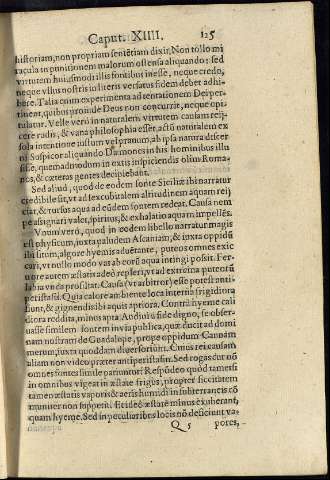 Caput. XIIII. 125
historiam, non propriam sententiam dixit. Non tollo mi
racula in punitionem malorum ostensa aliquando: sed
virtutem huiusmodi illis fontibus inesse, neque credo,
neque vllus nostris in literis versatus fidem debet adhi-
bere. Talia enim experimenta ad tentationem Dei per-
tinent, quibus proinde Deus non concurrit, neque opi
tulatur. Velle verò in naturalem virtutem causam reij-
cere rudis, & vana philosophia esset, actũ naturalem ex
sola intentione iustum vel prauum, ab ipsa natura discer
ni Suspicor aliquando Dæmones in his hominibus illu
sisse, quemadmodum in extis inspiciendis olim Roma-
nos, & cæteras gentes decipiebant.
Sed aliud, quod de eodem fonte Siciliæ ibi narratur
credibile sit, vt ad sex cubitalem altitudinem aquam reij
ciat, & rursus aqua ad eũdem fontem redeat. Causa nem
pe assignari valet, spiritus, & exhalatio aquam impellẽs.
Vnum verò, quod in eodem libello narratur magis
est physicum, iuxta paludem Ascaniam, & iuxta oppidũ
ibi situm, algore hyemis aduẽtante, puteos omnes exic
cari, vt nullo modo vas ab eorũ aqua intingi possit. Fer-
uore autem æstatis adeò repleri, vt ad extrema puteorũ
labia vnda prosiliat. Causa (vt arbitror) esse potest anti-
peristasis. Quia calore ambiente loca interna frigidiora
sunt, & gignendis ibi aquis aptiora. Contrà hyeme cali
diora reddita, minus apta. Audiui è fide digno, se obser-
uasse similem fontem in via publica, quæ ducit ad domi
nam nostram de Guadalope, prope oppidum Cañam
merum, iuxta quoddam diuersoriũ. Cuius rei causam
aliam non video præter antiperistasin. Sed rogas cur nõ
omnes fontes simile patiuntur? Respõdeo quòd tametsi
in omnibus vigeat in æstate frigus, propter siccitatem
tamen æstatis vaporis & aeris humidi in subterraneis cõ
muniter non suppetit. Et ideò æstate minus exuberant,
quam hyeme. Sed in peculiaribus locis nõ deficiunt va-
Q 5 pores,